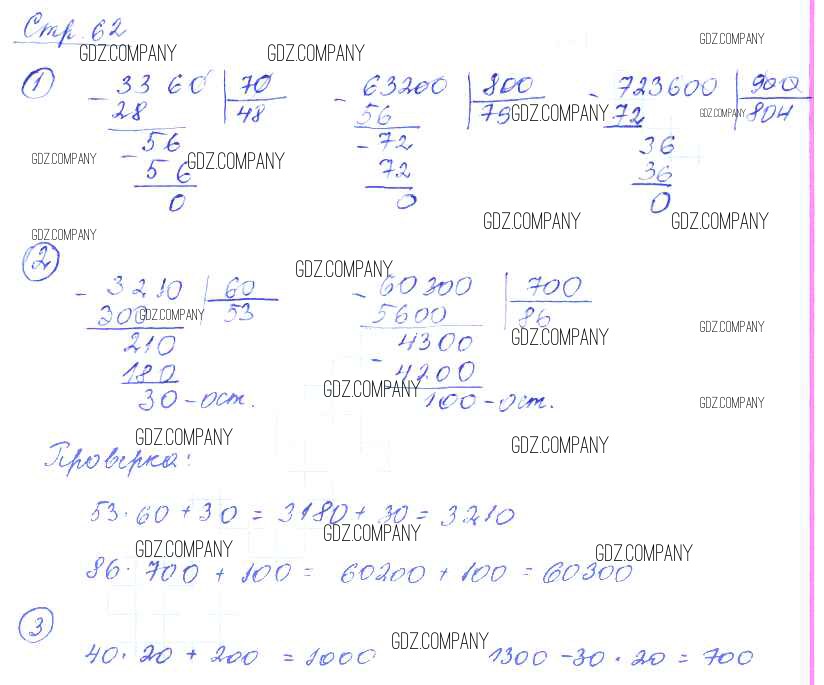 Стр. 62
GDZ.COMPANY GDZ.COMPANY GDZ.COMPANY
1 - 3360 | 70 - 63200 | 800 - 723600 | 900
28 48 56 79 GDZ.COMPANY 72 GDZ.COMPANY 804
- 56 - 72 36
GDZ.COMPANY 56 GDZ.COMPANY 72 36
0 0 0
GDZ.COMPANY GDZ.COMPANY
GDZ.COMPANY
2 - 3210 | 60 GDZ.COMPANY - 60300 | 700
300 GDZ.COMPANY 53 5600 86 GDZ.COMPANY GDZ.COMPANY
210 - 4300
180 4200 GDZ.COMPANY
30 - ост. 100 - ост. GDZ.COMPANY
GDZ.COMPANY GDZ.COMPANY
Проверка:
53 · 60 + 30 = 3180 + 30 = 3210
GDZ.COMPANY GDZ.COMPANY GDZ.COMPANY
86 · 700 + 100 = 60200 + 100 = 60300
3
GDZ.COMPANY
40 · 20 + 200 = 1000 1300 - 30 · 20 = 700